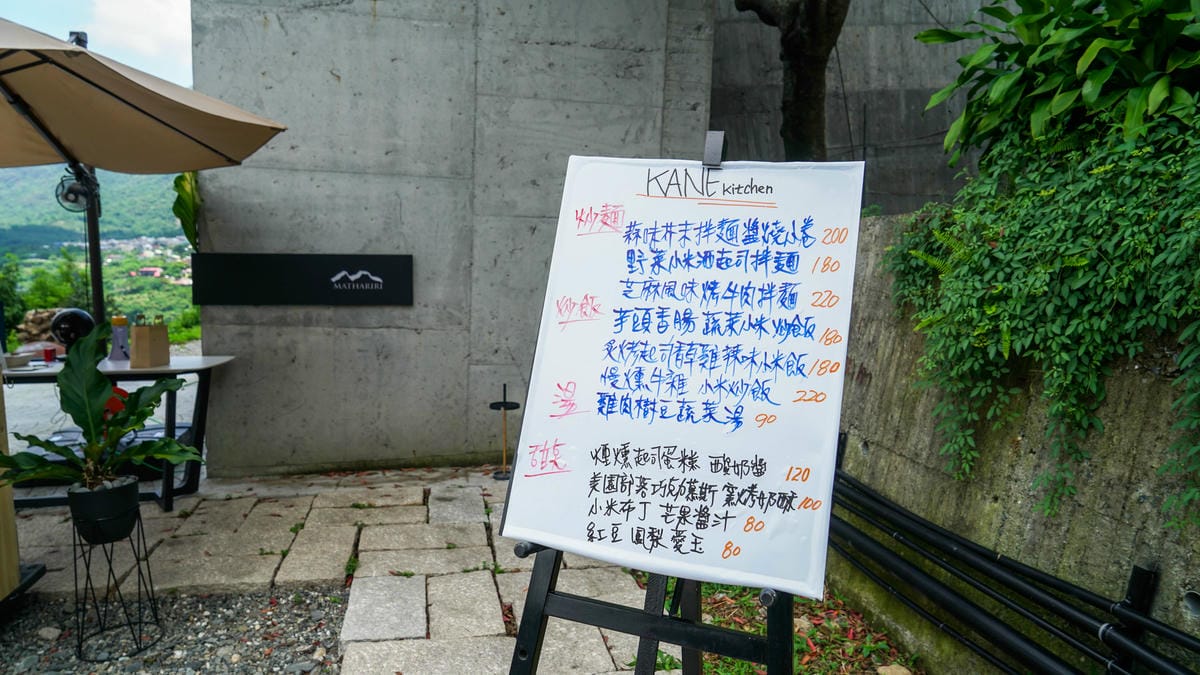 KANE kitchen
炒麵
蒜味芥末拌麵醬燒小卷 200
野菜小米酒起司拌麵 180
芝麻風味烤牛肉拌麵 220
炒飯
芋頭香腸蔬菜小米炒飯 180
炙烤起司香草雞辣味小米飯 180
慢燻牛雜 小米炒飯 220
湯
雞肉樹豆蔬菜湯 90
甜點
煙燻起司蛋糕 酸奶醬 120
美園部落巧克力慕斯 窯烤奶酥 100
小米布丁 芒果醬汁 80
紅豆 鳳梨 愛玉 80
MATHARIRI